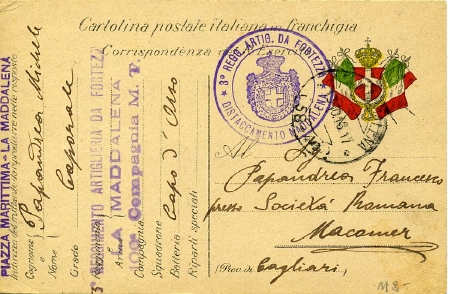 Cartolina postale italiana in franchigia
Corrispondenza del R. Esercito
3° REGG. ARTIG. DA FORTEZZA
DISTACCAMENTO MADDALENA
Al
Papandrea Francesco
presso Società Romana
Macomer
(Prov. di Cagliari)
118-
PIAZZA MARITTIMA - LA MADDALENA
Cognome Papandrea Michele
e
Nome
Grado Caporale
3° REGGIMENTO ARTIGLIERIA DA FORTEZZA
LA MADDALENA
Compagnia M. T.
Compagnia
Squadrone
Batteria Capo d'Orso
Riparti speciali